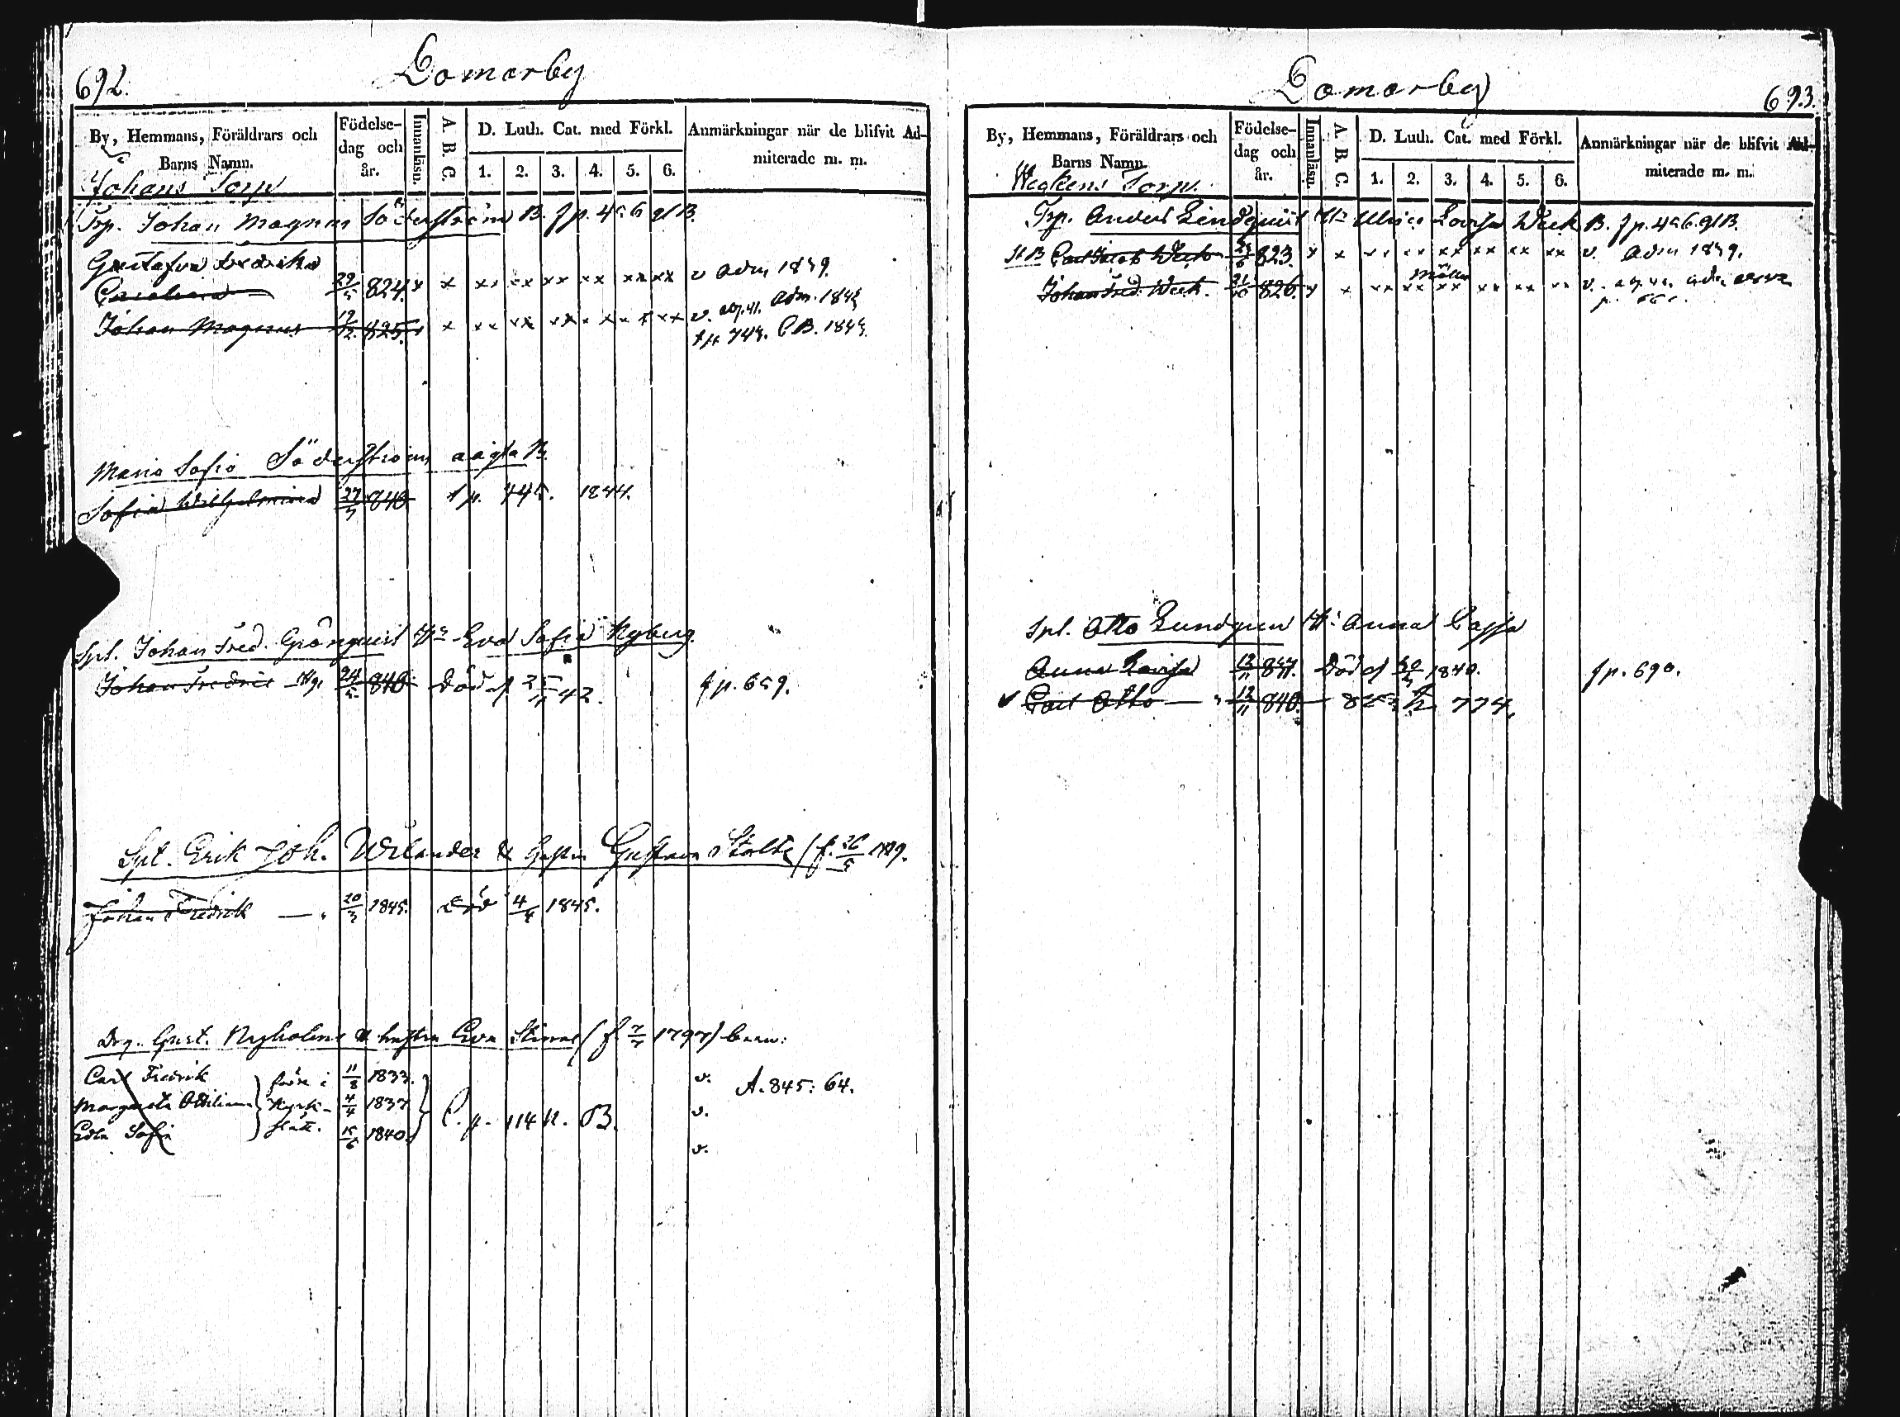 692.
Domarby
By, Hemmans, Föräldrars och Barns Namn.
Födelsedag och år.
Innanläsn.
A. B. C.
D. Luth. Cat. med Förkl.
1. 2. 3. 4. 5. 6.
Anmärkningar när de blifvit Admiterade m. m.
Johans Torp
Trp. Johan Magnus Söderström B. f p. 456 glB.
Gustafva Fredrika
29/5 824. x x xx xx xx xx xx xx v adm 1839.
Johan Magnus 825. x x xx xx xx xx xx xx v. adm. 1842
f p. 748. C B. 1844.
Maria Sofia Söderström oägta B.
Sofia Wilhelmina 27/3 840 f p. 745. 1844.
Spt. Johan Fred. Grönquist Eva Sofia Nyberg.
Johan Fredric 24/5 840. död d 25/11 42. f p. 659.
Spt. Erik Joh. Wilander & hustru Gustava Stolts (f. 26/5 1819.
Johan Fredrik — " 20/3 1845. död 4/4 1845.
Drg. Gust. Nyholms & hustru Eva Stinas (f. 1797) barn:
Carl Fredrik 11/8 1833. v.
Margareta Ottiliana 4/4 1837 v.
Edla Sofia 15/6 1840. v.
födde i Kyrkslätt.
C. p. 114 N. B.
A. 845: 64.
693.
Domarby
By, Hemmans, Föräldrars och Barns Namn.
Födelsedag och år.
Innanläsn.
A. B. C.
D. Luth. Cat. med Förkl.
1. 2. 3. 4. 5. 6.
Anmärkningar när de blifvit Admiterade m. m.
Weckens Torp.
Trp. Anders Lindquist Ulrica Lovisa Week B. f p. 456 glB.
Carl Jacob Week 823. x x xx xx xx xx xx xx v. adm 1839.
Johan Fred. Week. 826. x x xx xx xx xx xx xx v.
Spt. Otto Lundgren Anna Cajsa
Anna Lovisa död d 1840. f p. 690.
Carl Otto — " 12/11 840. 774.